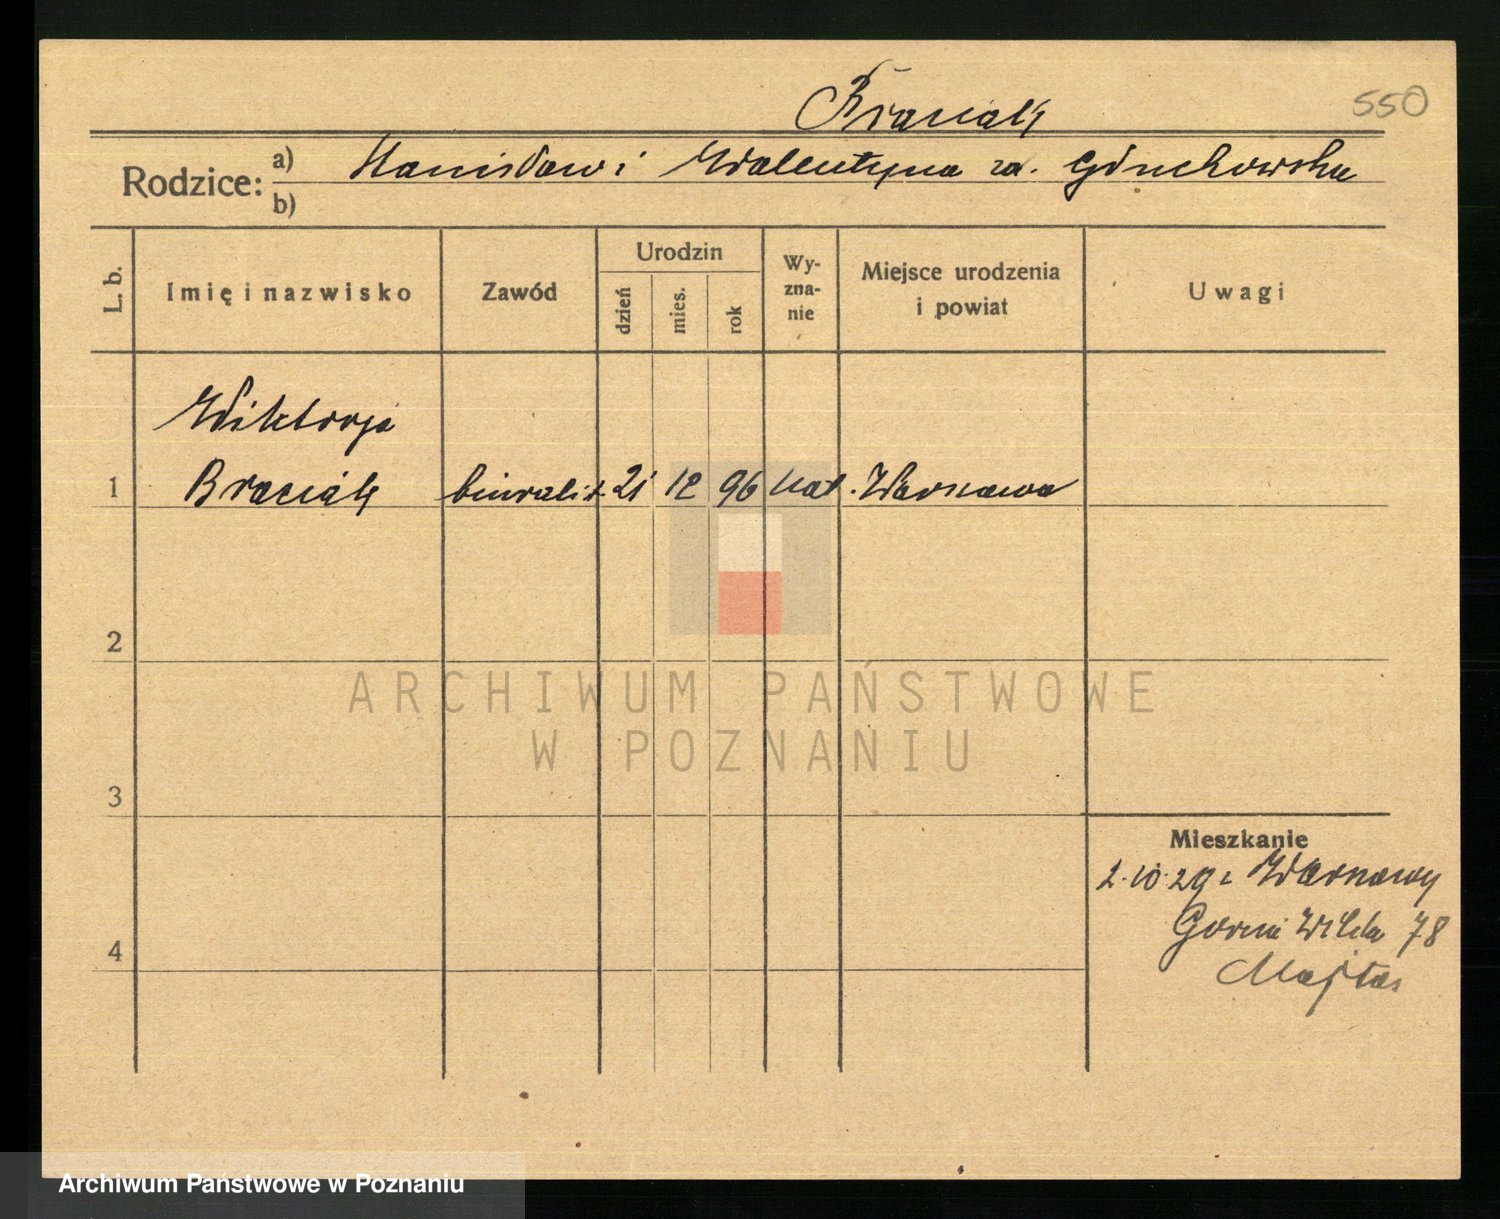 Braciak
550
Rodzice: a) Stanisław i Walentyna za.
b)
L. b.
Imię i nazwisko
Zawód
Urodzin
dzień
mies.
rok
Wy-
zna-
nie
Miejsce urodzenia
i powiat
Uwagi
Wiktorja
1 Braciak biuralist. 21 12 96 kat. Warszawa
2
3
4
Mieszkanie
2.10.29 z Warszawy
Górna Wilda 78
Majtas
ARCHIWUM PAŃSTWOWE
W POZNANIU
Archiwum Państwowe w Poznaniu